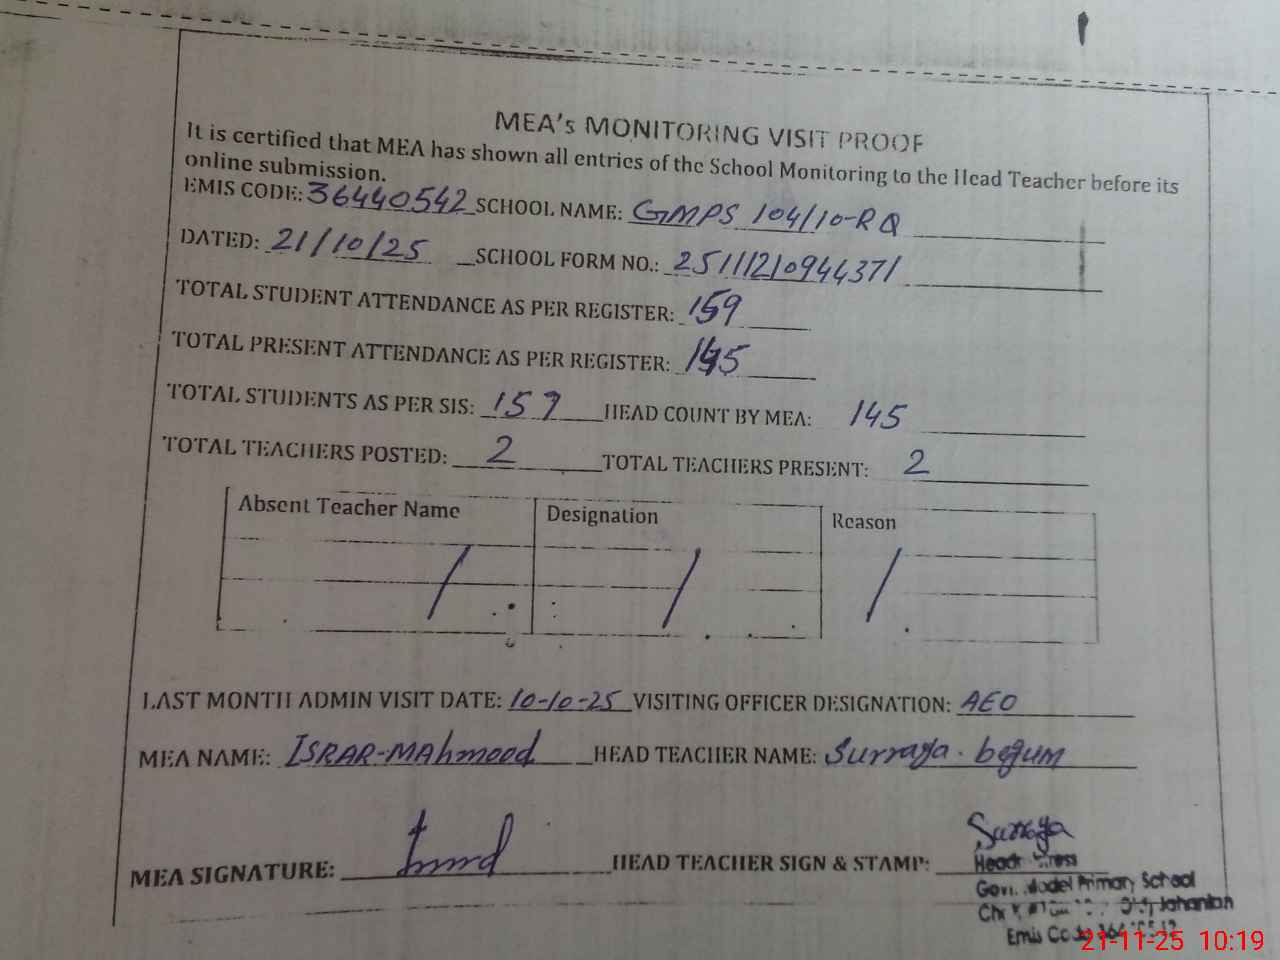 MEA's MONITORING VISIT PROOF
It is certified that MEA has shown all entries of the School Monitoring to the Head Teacher before its
online submission.
EMIS CODE: 36440542 SCHOOL NAME: GMPS 104/10-R Q
DATED: 21/10/25 SCHOOL FORM NO.: 25111210944371
TOTAL STUDENT ATTENDANCE AS PER REGISTER: 159
TOTAL PRESENT ATTENDANCE AS PER REGISTER: 145
TOTAL STUDENTS AS PER SIS: 159 HEAD COUNT BY MEA: 145
TOTAL TEACHERS POSTED: 2 TOTAL TEACHERS PRESENT: 2
Absent Teacher Name Designation Reason
/ / /
LAST MONTH ADMIN VISIT DATE: 10-10-25 VISITING OFFICER DESIGNATION: AEO
MEA NAME: ISRAR-MAhmood HEAD TEACHER NAME: Surraya. begum
Surraya
MEA SIGNATURE: HEAD TEACHER SIGN & STAMP:
Govt. Model Primary School
Jahanian
Emis Code
21-11-25 10:19